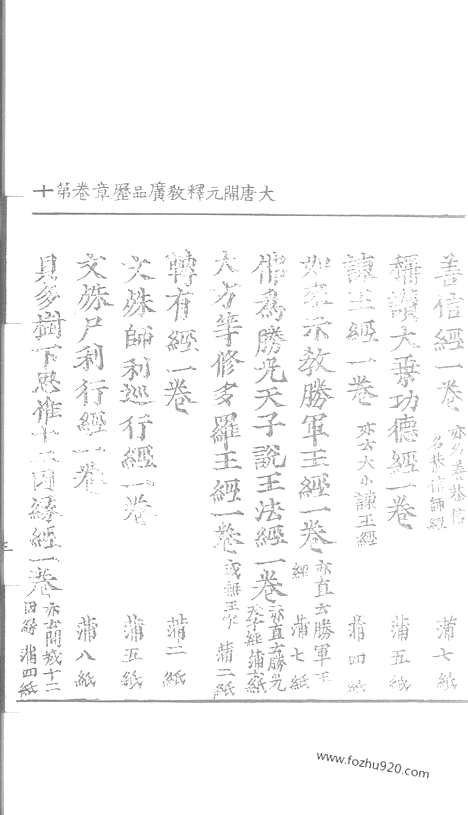 大唐開元釋教廣品歷章卷第十
善信經一卷 亦名善恭信 名恭信師經 蒲七紙
稱讚大乘功德經一卷 蒲五紙
諫王經一卷 亦云大小諫王經 蒲四紙
如來示教勝軍王經一卷 亦直云勝軍王經 蒲七紙
佛為勝光天子說王法經一卷 亦直云勝光天子經 蒲六紙
大方等修多羅王經一卷 或無王字 蒲二紙
轉有經一卷 蒲二紙
文殊師利巡行經一卷 蒲五紙
文殊尸利行經一卷 蒲八紙
貝多樹下思惟十二因緣經一卷 亦云聞城十二因緣 蒲四紙
三
www.fozhu920.com